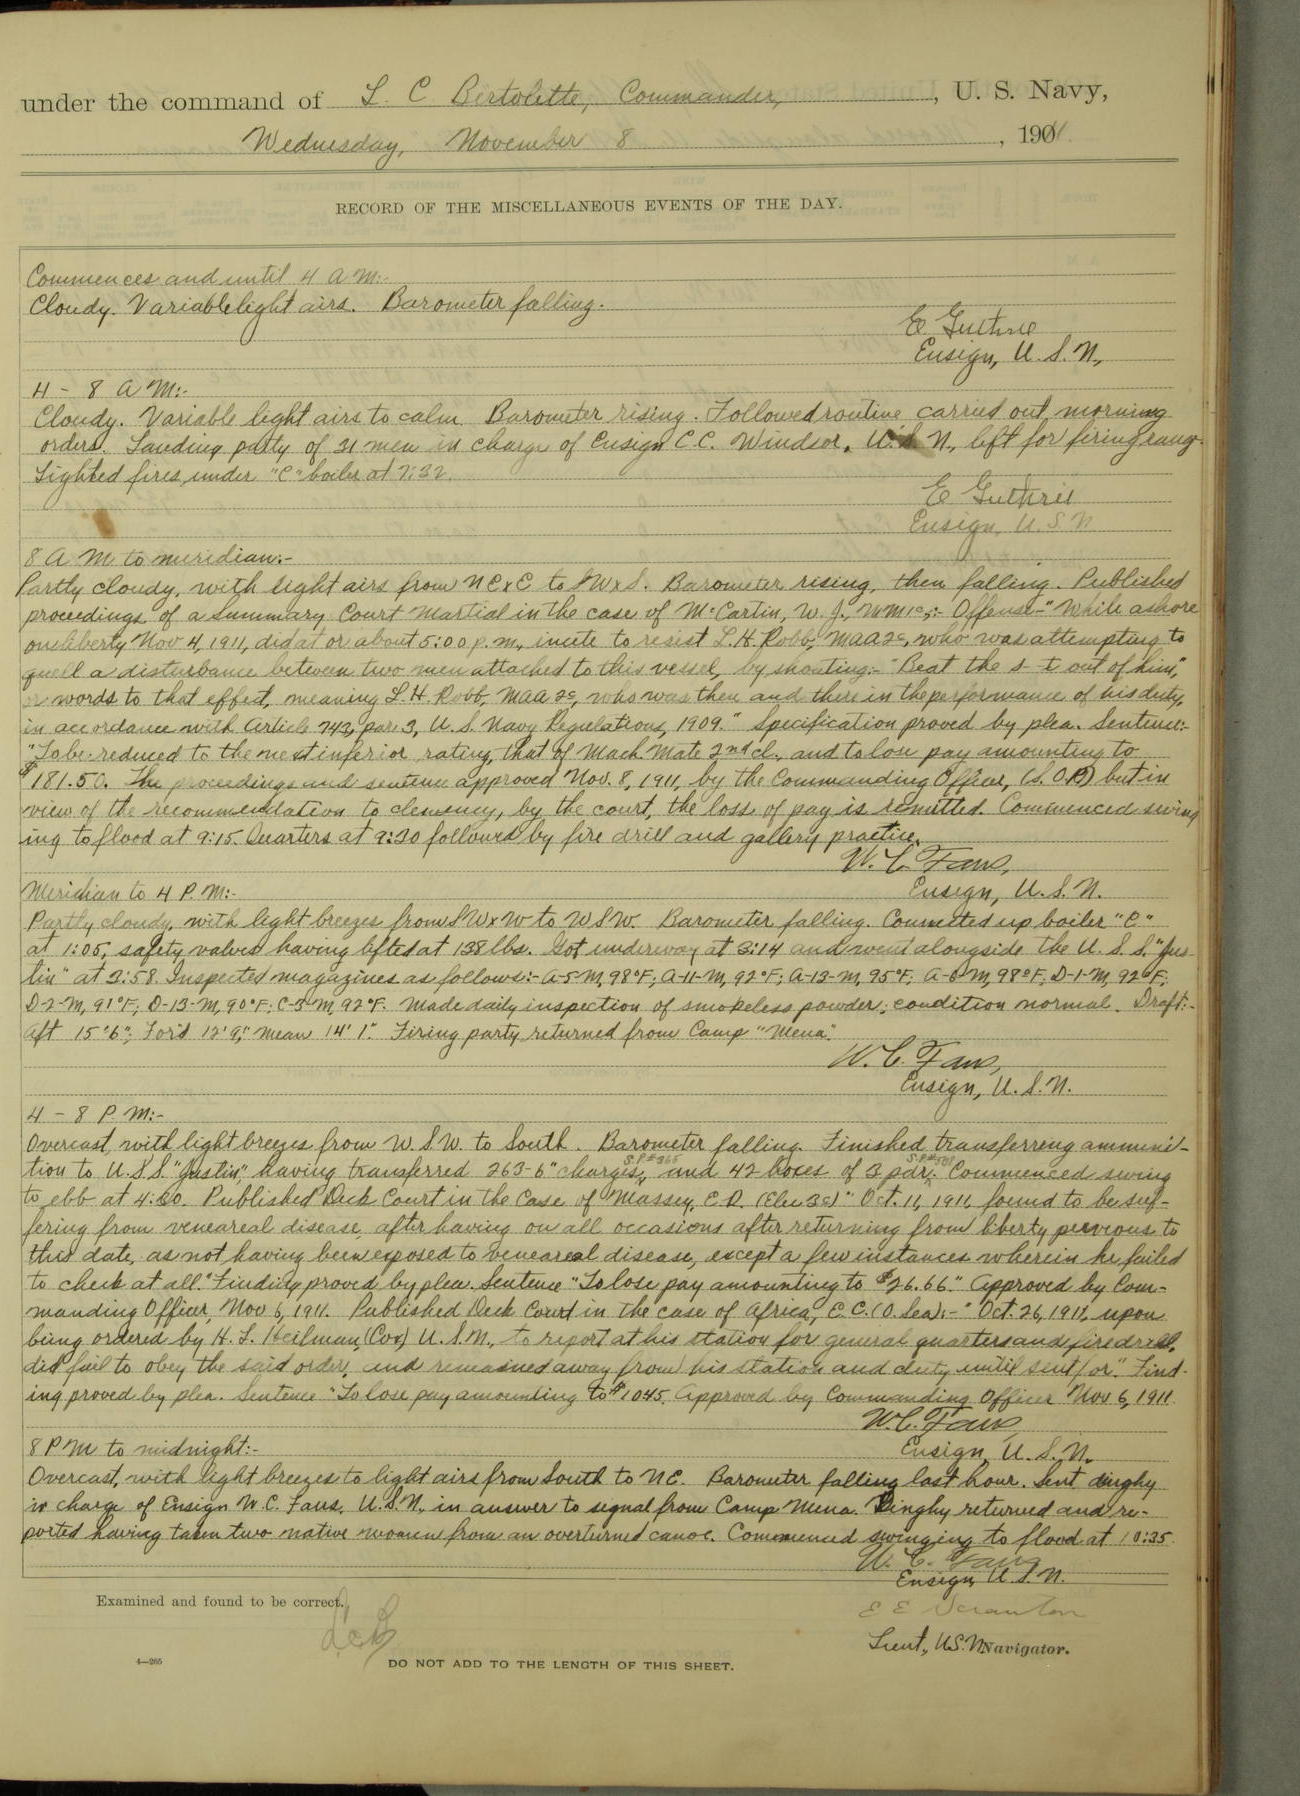 under the command of L C Bertolette, Commander, , U. S. Navy,
Wednesday, November 8 , 1911.
RECORD OF THE MISCELLANEOUS EVENTS OF THE DAY.
Commences and until 4 A M:-
Cloudy. Variable light airs. Barometer falling.
E Guthrie
Ensign, U. S. N.,
4 - 8 A M:-
Cloudy. Variable light airs to calm. Barometer rising. Followed routine carried out morning
orders. Landing party of 31 men in charge of Ensign C.C. Windsor, U.S.N., left for firing range.
Lighted fires under "C" boiler at 7:32.
E Guthrie
Ensign, U. S. N
8 A M to meridian:-
Partly cloudy, with light airs from NExE to SWxS. Barometer rising, then falling. Published
proceedings of a Summary Court Martial in the case of McCartin, W. J., MM1c,:- Offense-"While ashore
on liberty Nov 4, 1911, did at or about 5:00 p.m., incite to resist L. H. Robb, MAA2c, who was attempting to
quell a disturbance between two men attached to this vessel, by shouting:- "Beat the s-t out of him",
or words to that effect, meaning L. H. Robb, MAA 2c, who was then and there in the performance of his duty,
in accordance with Article 743, par. 3, U. S. Navy Regulations, 1909." Specification proved by plea. Sentence:-
"To be reduced to the next inferior rating, that of Mach Mate 2nd cl., and to lose pay amounting to
$181.50. The proceedings and sentence approved Nov. 8, 1911, by the Commanding Officer, (S.O.P) but in
view of the recommendation to clemency, by the court, the loss of pay is remitted. Commenced swing
ing to flood at 9:15. Quarters at 9:30 followed by fire drill and gallery practice.
W. C. Faus,
Ensign, U. S. N.
Meridian to 4 P. M:-
Partly cloudy, with light breezes from SWxW to WSW. Barometer falling. Connected up boiler "C"
at 1:05, safety valves having lifted at 138 lbs. Got underway at 3:14 and went alongside the U. S. S. "Jus-
tin" at 3:58. Inspected magazines as follows:- A-5-M, 98°F; A-11-M, 92°F; A-13-M, 95°F; A-6-M, 98°F; D-1-M, 92°F;
D-2-M, 91°F; D-13-M, 90°F; C-5-M, 92°F. Made daily inspection of smokeless powder; condition normal. Draft:-
Aft 15' 6"; For'd 12' 9"; Mean 14' 1". Firing party returned from Camp "Mena".
W. C. Faus,
Ensign, U. S. N.
4 - 8 P. M:-
Overcast, with light breezes from W. S. W. to South. Barometer falling. Finished transferreng ammuni-
tion to U. S. S. "Justin", having transferred 263-6" charges, and 42 boxes of 3 pdr. Commenced swing
to ebb at 4:30. Published Deck Court in the Case of Massey, C. D. (Elec 3c) "Oct. 11, 1911, found to be suf-
fering from veneareal disease, after having on all occasions after returning from liberty previous to
this date, as not having been exposed to veneareal disease, except a few instances wherein he failed
to check at all." Finding proved by plea. Sentence "To lose pay amounting to $26.66." Approved by Com-
manding Officer, Nov 6, 1911. Published Deck Court in the case of Africa, E. C. (O. Sea):- "Oct. 26, 1911, upon
being ordered by H. L. Heilman, (Cox) U. S. N., to report at his station for general quarters and fire drill,
did fail to obey the said order, and remained away from his station and duty until sent for." Find-
ing proved by plea. Sentence "To lose pay amounting to $1045. Approved by Commanding Officer Nov 6, 1911.
W. C. Faus
Ensign, U. S. N.
8 P M to midnight:-
Overcast, with light breezes to light airs from South to NE. Barometer falling last hour. Sent dinghy
in charge of Ensign W. C. Faus, U.S.N. in answer to signal from Camp Mena. Dinghy returned and re-
ported having taken two native women from an overturned canoe. Commenced swinging to flood at 10:35.
W. C. Faus
Ensign, U. S. N.
Examined and found to be correct.
LCB
E E Scranton
Lieut., U.S.N. Navigator.
4—265
DO NOT ADD TO THE LENGTH OF THIS SHEET.